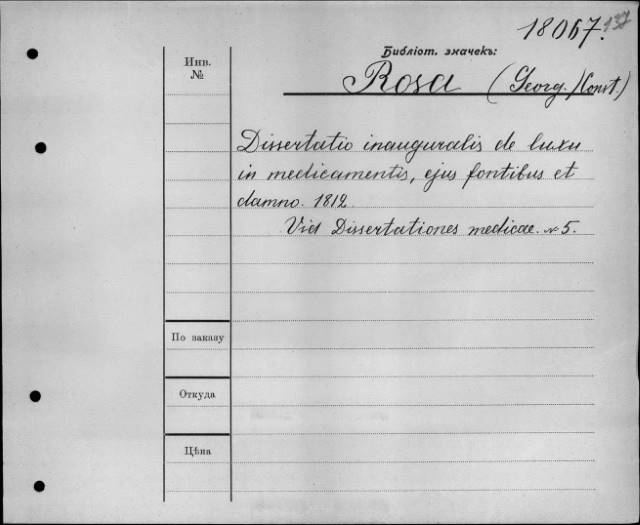 18067. 137
Библіот. значекъ:
Инв.
№
Rosa (Georg.) Const.)
Dissertatio inauguralis de luxu
in medicamentis, ejus fontibus et
damno. 1812.
Vid Dissertationes medicae. № 5.
По заказу
Откуда
Цѣна